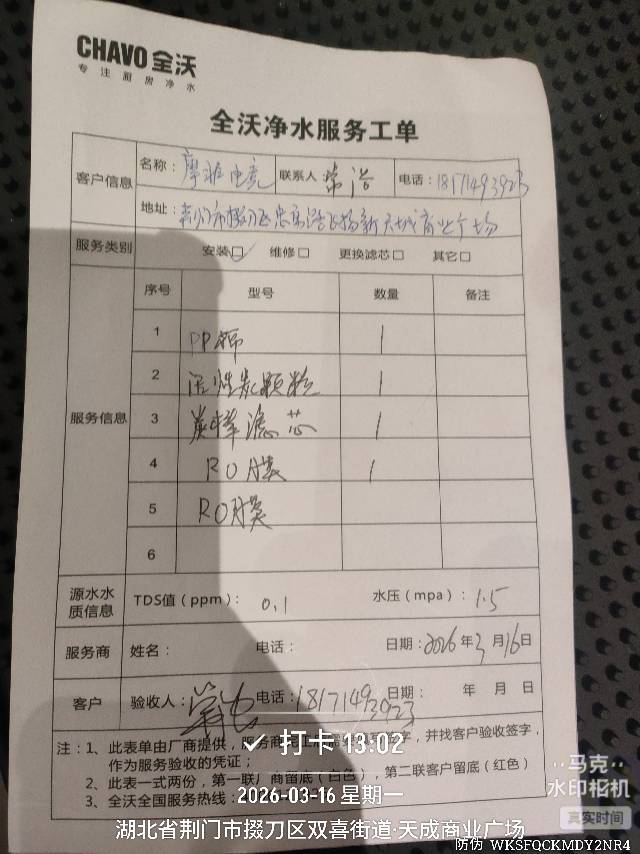 CHAVO 全沃
专注厨房净水
全沃净水服务工单
客户信息 名称: 摩雅电竞 联系人 常浩 电话: 18171493923
地址: 荆门市掇刀区 飞扬新天城商业广场
服务类别 安装☑ 维修□ 更换滤芯□ 其它□
服务信息 序号 型号 数量 备注
1 PP棉 1
2 活性炭颗粒 1
3 炭棒滤芯 1
4 RO膜 1
5 RO膜
6
源水水质信息 TDS值(ppm): 0.1 水压(mpa): 1.5
服务商 姓名: 电话: 日期: 2026年3月16日
客户 验收人: 电话: 18171493923 日期: 年 月 日
注: 1、此表单由厂商提供,服务商 字,并找客户验收签字,
作为服务验收的凭证;
2、此表一式两份,第一联厂商留底(白色),第二联客户留底(红色)
3、全沃全国服务热线:
打卡 13:02
2026-03-16 星期一
湖北省荆门市掇刀区双喜街道·天成商业广场
马克
水印相机
真实时间
防伪 WKSFQCKMDY2NR4